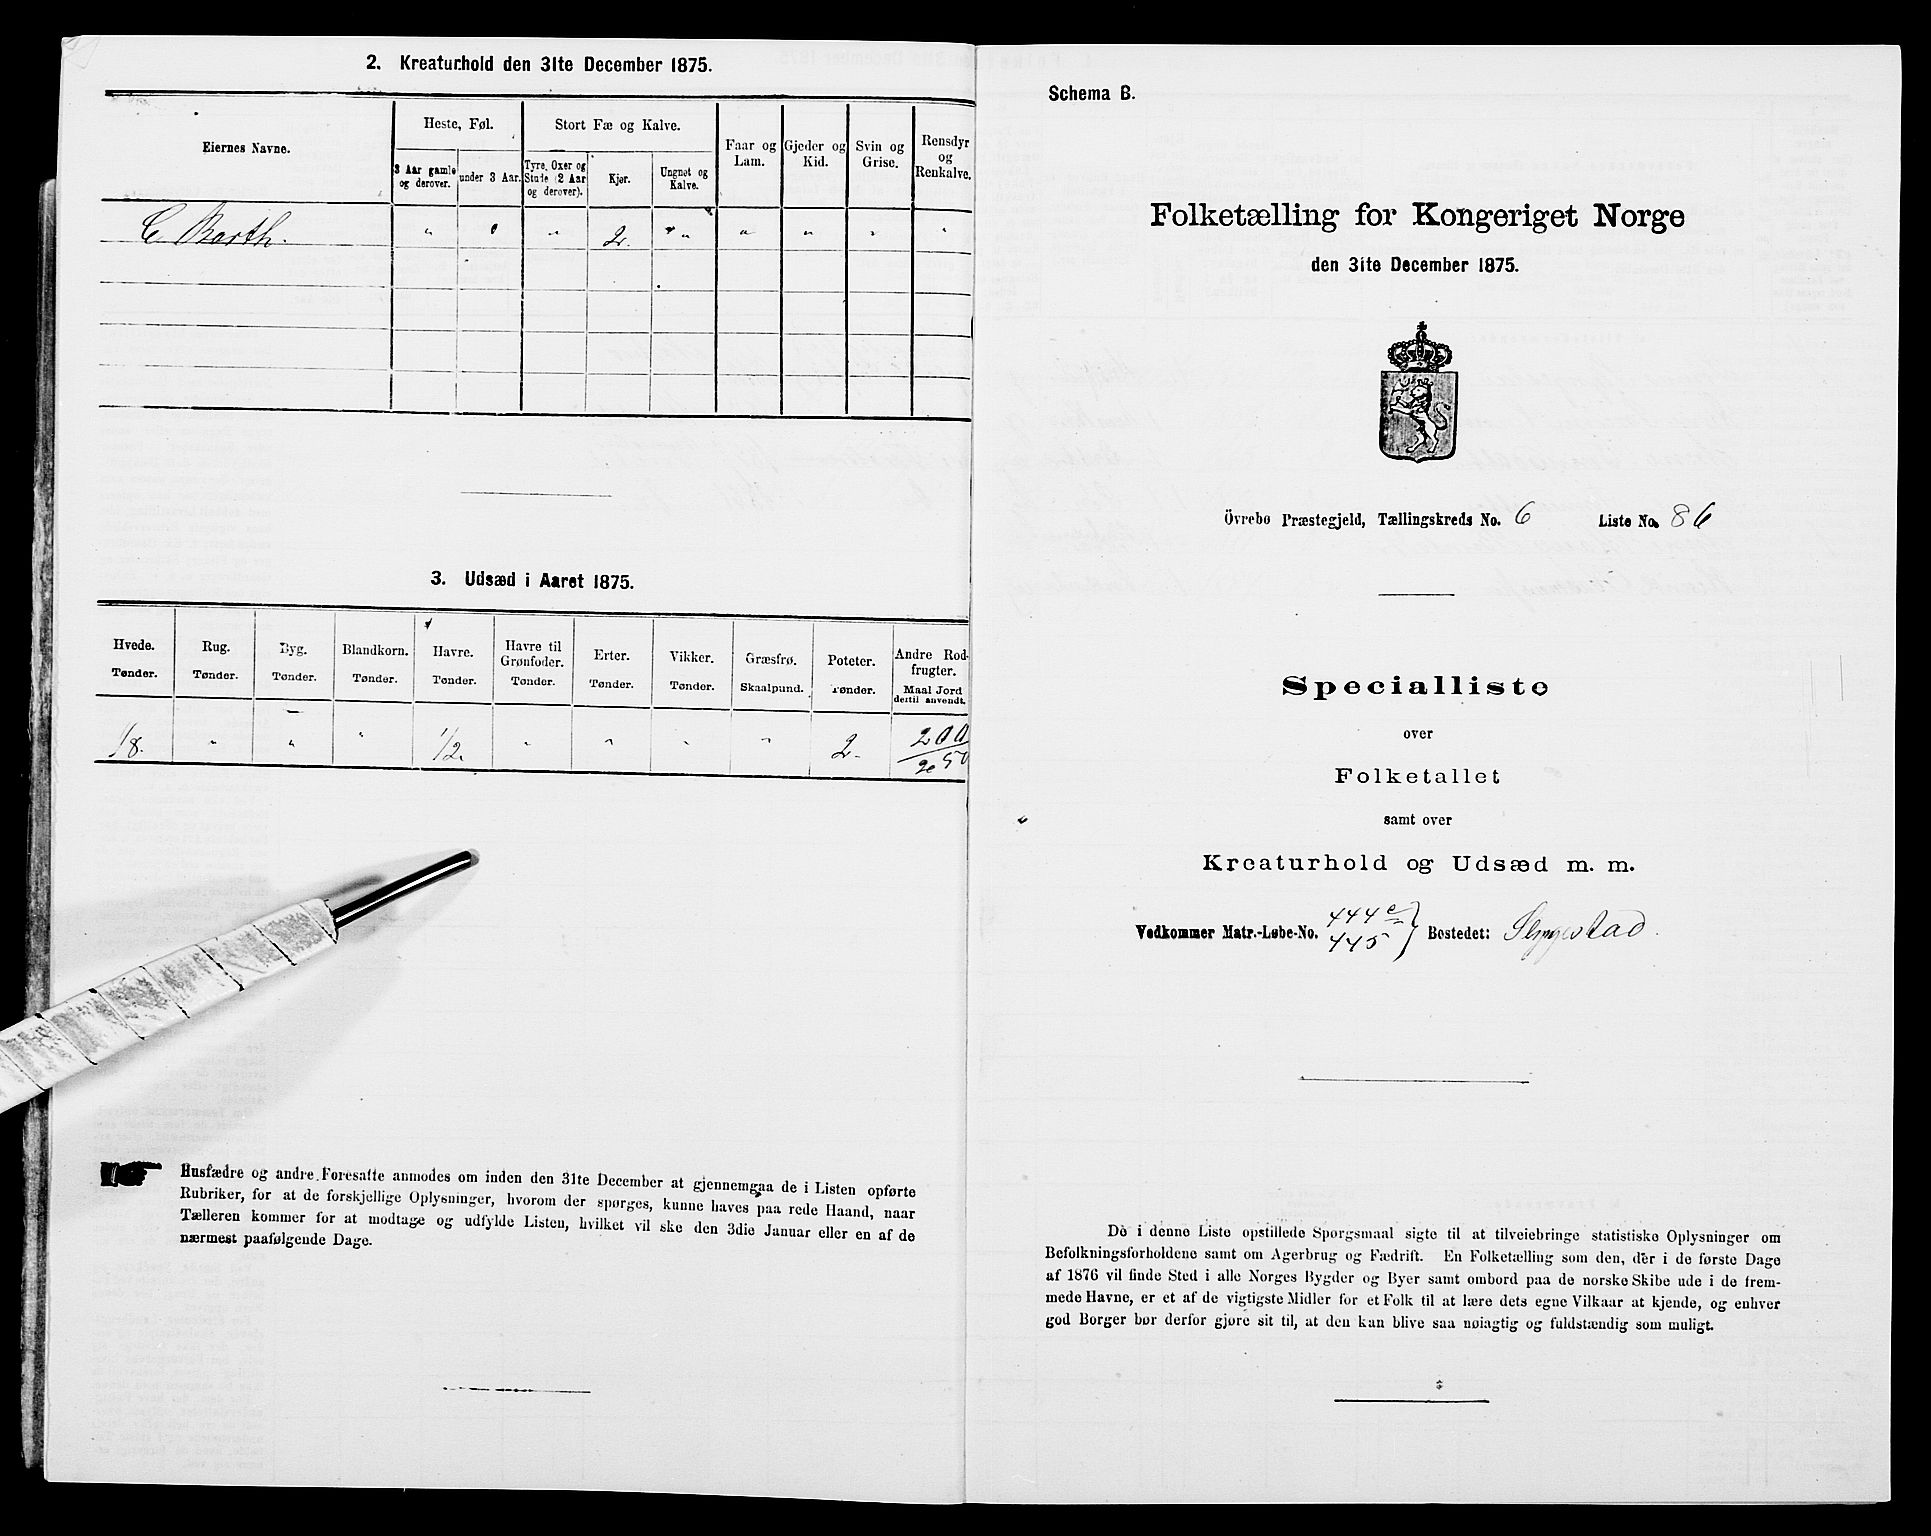 2. Kreaturhold den 31te December 1875.
Eiernes Navne.
Heste, Føl.
Stort Fæ og Kalve.
Faar og Lam.
Gjeder og Kid.
Svin og Grise.
Rensdyr og Renkalve.
3 Aar gamle og derover.
under 3 Aar.
Tyre, Oxer og Stude (2 Aar og derover).
Kjør.
Ungnøt og Kalve.
C. Barth. " " " 2. " " " " "
3. Udsæd i Aaret 1875.
Hvede. Rug. Byg. Blandkorn. Havre. Havre til Grønfoder. Erter. Vikker. Græsfrø. Poteter. Andre Rodfrugter.
Tønder. Tønder. Tønder. Tønder. Tønder. Tønder. Tønder. Tønder. Skaalpund. Tønder. Maal Jord dertil anvendt.
1/8. " " " 1/2. " " " " 2.
Husfædre og andre Foresatte anmodes om inden den 31te December at gjennemgaa de i Listen opførte
Rubriker, for at de forskjellige Oplysninger, hvorom der spørges, kunne haves paa rede Haand, naar
Tælleren kommer for at modtage og udfylde Listen, hvilket vil ske den 3die Januar eller en af de
nærmest paafølgende Dage.
Schema B.
Folketælling for Kongeriget Norge
den 31te December 1875.
Övrebø Præstegjeld, Tællingskreds No. 6 Liste No. 86
Specialliste
over
Folketallet
samt over
Kreaturhold og Udsæd m. m.
Vedkommer Matr.-Løbe-No. 444 e
445 } Bostedet:
De i denne Liste opstillede Spørgsmaal sigte til at tilveiebringe statistiske Oplysninger om
Befolkningsforholdene samt om Agerbrug og Fædrift. En Folketælling som den, der i de første Dage
af 1876 vil finde Sted i alle Norges Bygder og Byer samt ombord paa de norske Skibe ude i de frem-
mede Havne, er et af de vigtigste Midler for et Folk til at lære dets egne Vilkaar at kjende, og enhver
god Borger bør derfor gjøre sit til, at den kan blive saa nøiagtig og fuldstændig som muligt.